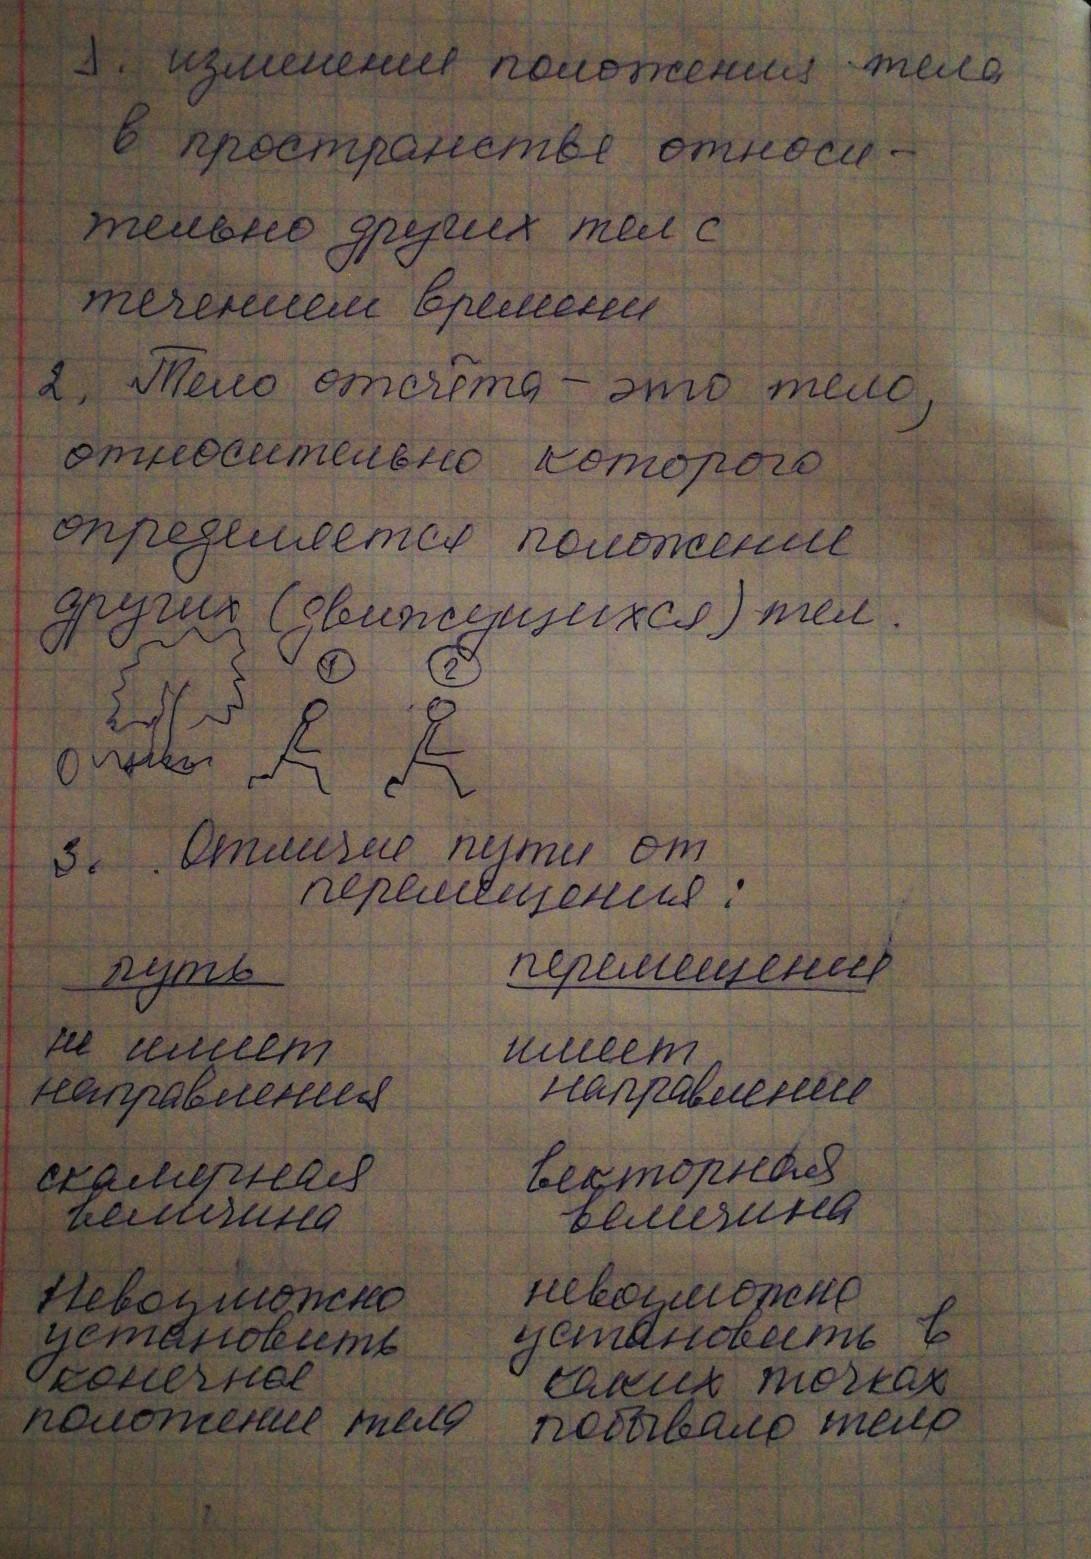 1. изменение положения тела
в пространстве относи-
тельно других тел с
течением времени
2. Тело отсчёта - это тело,
относительно которого
определяется положение
других (движущихся) тел.
1 2
3. Отличие пути от
перемещения:
путь перемещение
не имеет имеет
направления направление
скалярная векторная
величина величина
Невозможно невозможно
установить установить в
конечное каких точках
положение тела побывало тело